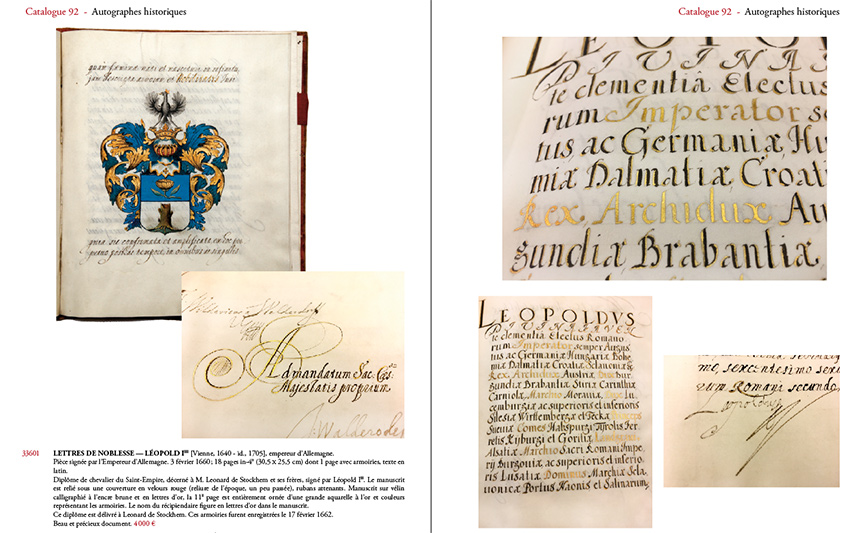 Catalogue 92 - Autographes historiques
jam
Nobilitatis
pura sic confirmata et amplificata, in hoc
quam posthac tempore, in omnibus in singulis
Ad mandatum Sac. Cæs.
Majestatis proprium
33601 LETTRES DE NOBLESSE — LÉOPOLD Iᵉʳ [Vienne, 1640 - id., 1705], empereur d'Allemagne.
Pièce signée par l'Empereur d'Allemagne. 3 février 1660 ; 18 pages in-4° (30,5 x 25,5 cm) dont 1 page avec armoiries, texte en
latin.
Diplôme de chevalier du Saint-Empire, décerné à M. Leonard de Stockhem et ses frères, signé par Léopold Iᵉʳ. Le manuscrit
est relié sous une couverture en velours rouge (reliure de l'époque, un peu passée), rubans attenants. Manuscrit sur vélin
calligraphié à l'encre brune et en lettres d'or, la 11ᵉ page est entièrement ornée d'une grande aquarelle à l'or et couleurs
représentant les armoiries. Le nom du récipiendaire figure en lettres d'or dans le manuscrit.
Ce diplôme est délivré à Leonard de Stockhem. Ces armoiries furent enregistrées le 17 février 1662.
Beau et précieux document. 4 000 €
Catalogue 92 - Autographes historiques
LEOPO
DIVINA
te clementiâ Electus
rum Imperator se
tus, ac Germaniæ, Hu
miæ Dalmatiæ, Croat
Rex Archidux Au
gundiæ Brabantiæ,
LEOPOLDVS
DIVINA FAVEN
te clementia Electus Romano
rum Imperator semper Augus
tus, ac Germaniæ Hungariæ Bohe
miæ Dalmatiæ Croatiæ Sclavoniæ
Rex Archidux Austriæ Dux Bur
gundiæ Brabantiæ Stiriæ Carinthiæ
Carniolæ, Marchio Moraviæ, Dux Lu
cemburgiæ ac superioris et inferioris
Silesiæ Wirttembergæ et Teckæ
Sueviæ Comes Habspurgi Tyrolis Fer
retis Kyburgi et Goritiæ,
Alsatiæ Marchio Sacri Romani Impe
rij Burgoviæ ac superioris et inferio
ris Lusatiæ Dominus Marchiæ Scla
vonicæ Portus Naonis et Salinarum,
me, sexcentesimo sexa
rum, Romani secundo,
Leopoldus